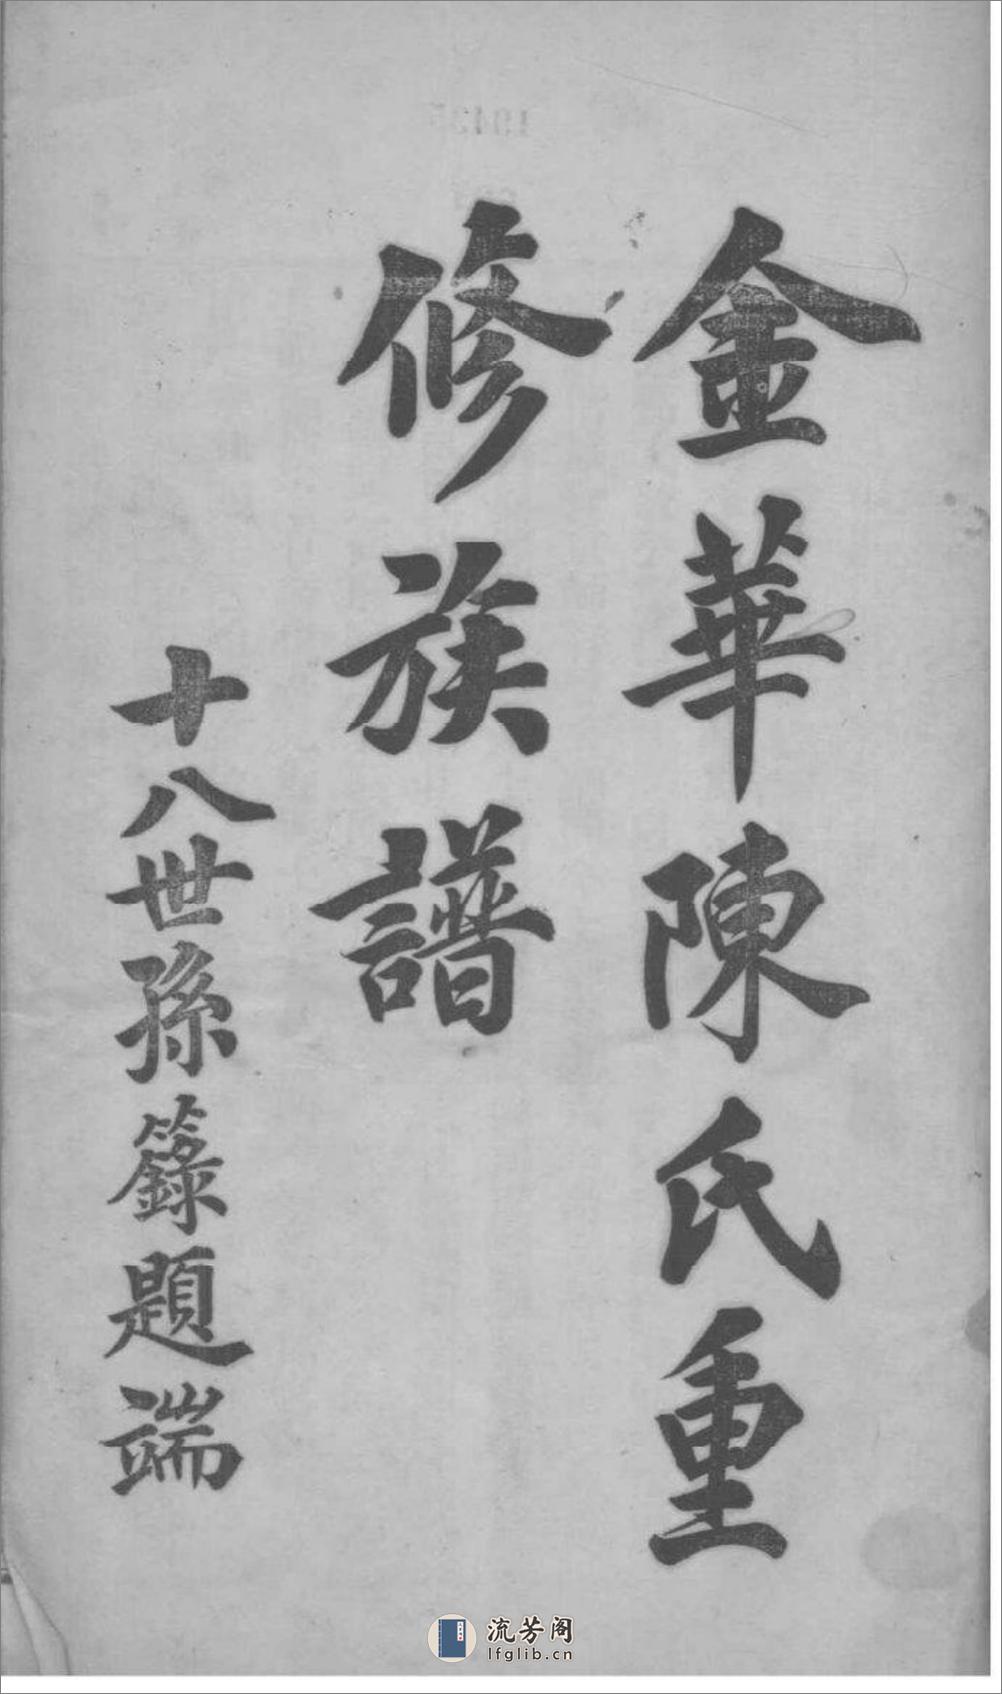 金華陳氏重
修族譜
十八世孫籙題端
流芳阁
lfglib.cn